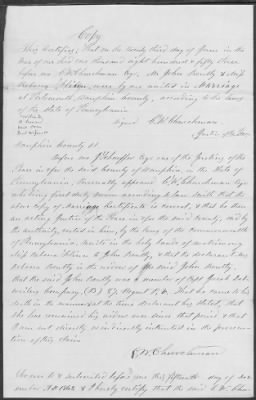 Copy
This Certifies, That on the twenty third day of June in the
year of our Lord one thousand eight hundred & fifty three
before me C W Churchman Esqr. Mr John Bently & Miss
Rebecca were by me united in Marriage
at Portsmouth, Dauphin County, according to the laws
of the State of Pennsylvania
signed C. W. Churchman.
Justice of the Peace
Dauphin County ss
Before me J Schaeffer Esqr one of the Justices of the
Peace in & for the said County of Dauphin, in the State of
Pennsylvania, Personally appeared C. W. Churchman Esqr
who being first duly sworn according to law, saith that the
above copy of Marriage Certificate is correct, & that he then
an acting Justice of the Peace in & for the said County, and by
the authority vested in him, by the laws of the Commonwealth
of Pennsylvania, united in the holy bands of matrimony
Miss Rebecca to John Bently, & that the declarant
Rebecca Bently is the widow of the said John Bently,
that the said John Bently was a member of Capt Jacob
Company (D) Regiment That he came to his
death in the manner & at the time declarant has stated, that
she has remained his widow ever since that period & that
I am not directly or indirectly interested in the prosecu-
tion of this claim
C. W. Churchman
Sworn to & subscribed before me this fifteenth day of
1862 & I hereby certify that the said C. W. Chur